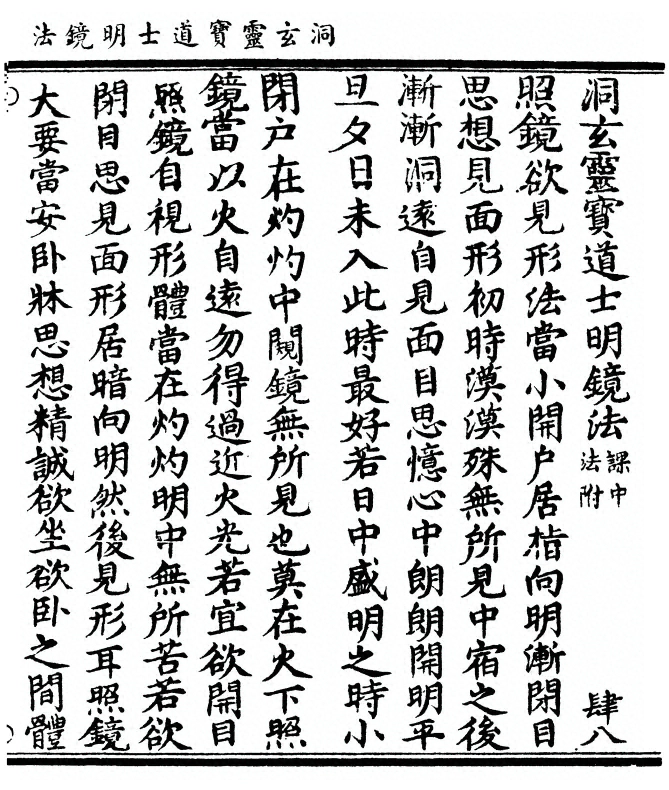 洞玄靈寶道士明鏡法
洞玄靈寶道士明鏡法 課中法附 肆八
照鏡欲見形法當小開户居㨨向明漸閉目
思想見面形初時漠漠殊無所見中宿之後
漸漸洞遠自見面目思憶心中朗朗開明平
旦夕日未入此時最好若日中盛明之時小
閉户在灼灼中闚鏡無所見也莫在火下照
鏡當以火自遠勿得過近火光若宜欲開目
照鏡自視形體當在灼灼明中無所苦若欲
閉目思見面形居暗向明然後見形耳照鏡
大要當安卧牀思想精誠欲坐欲卧之間體